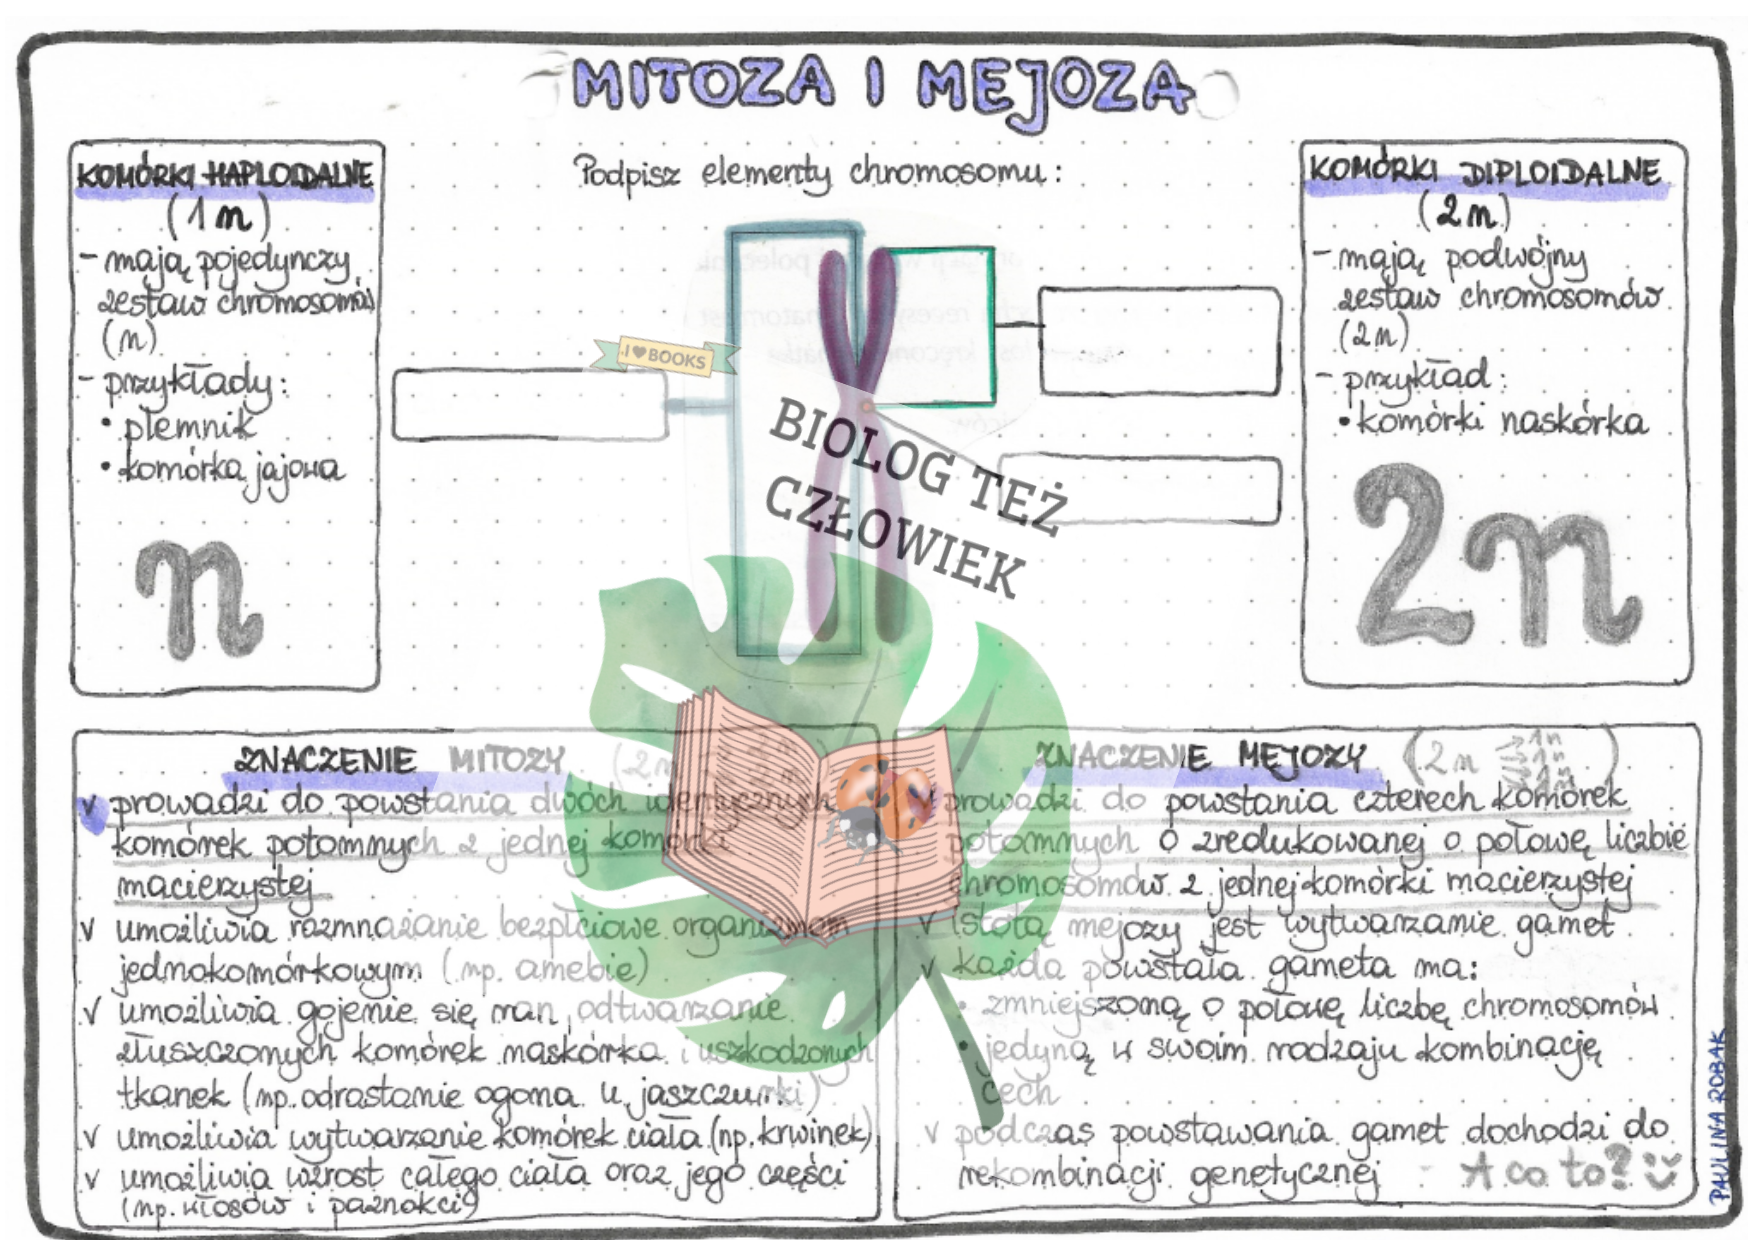 MITOZA I MEJOZA
KOMÓRKI HAPLOIDALNE
(1n)
- mają pojedynczy
zestaw chromosomów
(n)
- przykłady:
• plemnik
• komórka jajowa
n
Podpisz elementy chromosomu:
I ♥ BOOKS
BIOLOG TEŻ
CZŁOWIEK
KOMÓRKI DIPLOIDALNE
(2n)
- mają podwójny
zestaw chromosomów
(2n)
- przykład:
• komórki naskórka
2n
ZNACZENIE MITOZY (2n → 2n
v prowadzi do powstania dwóch identycznych
komórek potomnych z jednej komórki
macierzystej
v umożliwia rozmnażanie bezpłciowe organizmom
jednokomórkowym (np. amebie)
v umożliwia gojenie się ran, odtwarzanie
złuszczonych komórek naskórka i uszkodzonych
tkanek (np. odrastanie ogona u jaszczurki)
v umożliwia wytwarzanie komórek ciała (np. krwinek)
v umożliwia wzrost całego ciała oraz jego części
(np. włosów i paznokci)
ZNACZENIE MEJOZY (2n → 1n → 1n)
v prowadzi do powstania czterech komórek
potomnych o zredukowanej o połowę liczbie
chromosomów z jednej komórki macierzystej
v Istotą mejozy jest wytwarzanie gamet
v każda powstała gameta ma:
• zmniejszoną o połowę liczbę chromosomów
• jedyną w swoim rodzaju kombinację
cech
v podczas powstawania gamet dochodzi do
rekombinacji genetycznej - A co to?
PAULINA ROBAK